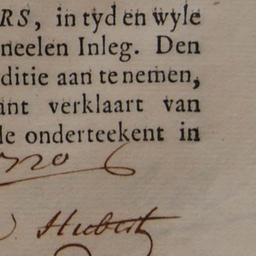 RS, in tyd en wyle
neelen Inleg. Den
ditie aan te nemen,
ant verklaart van
le onderteekent in
Hubert